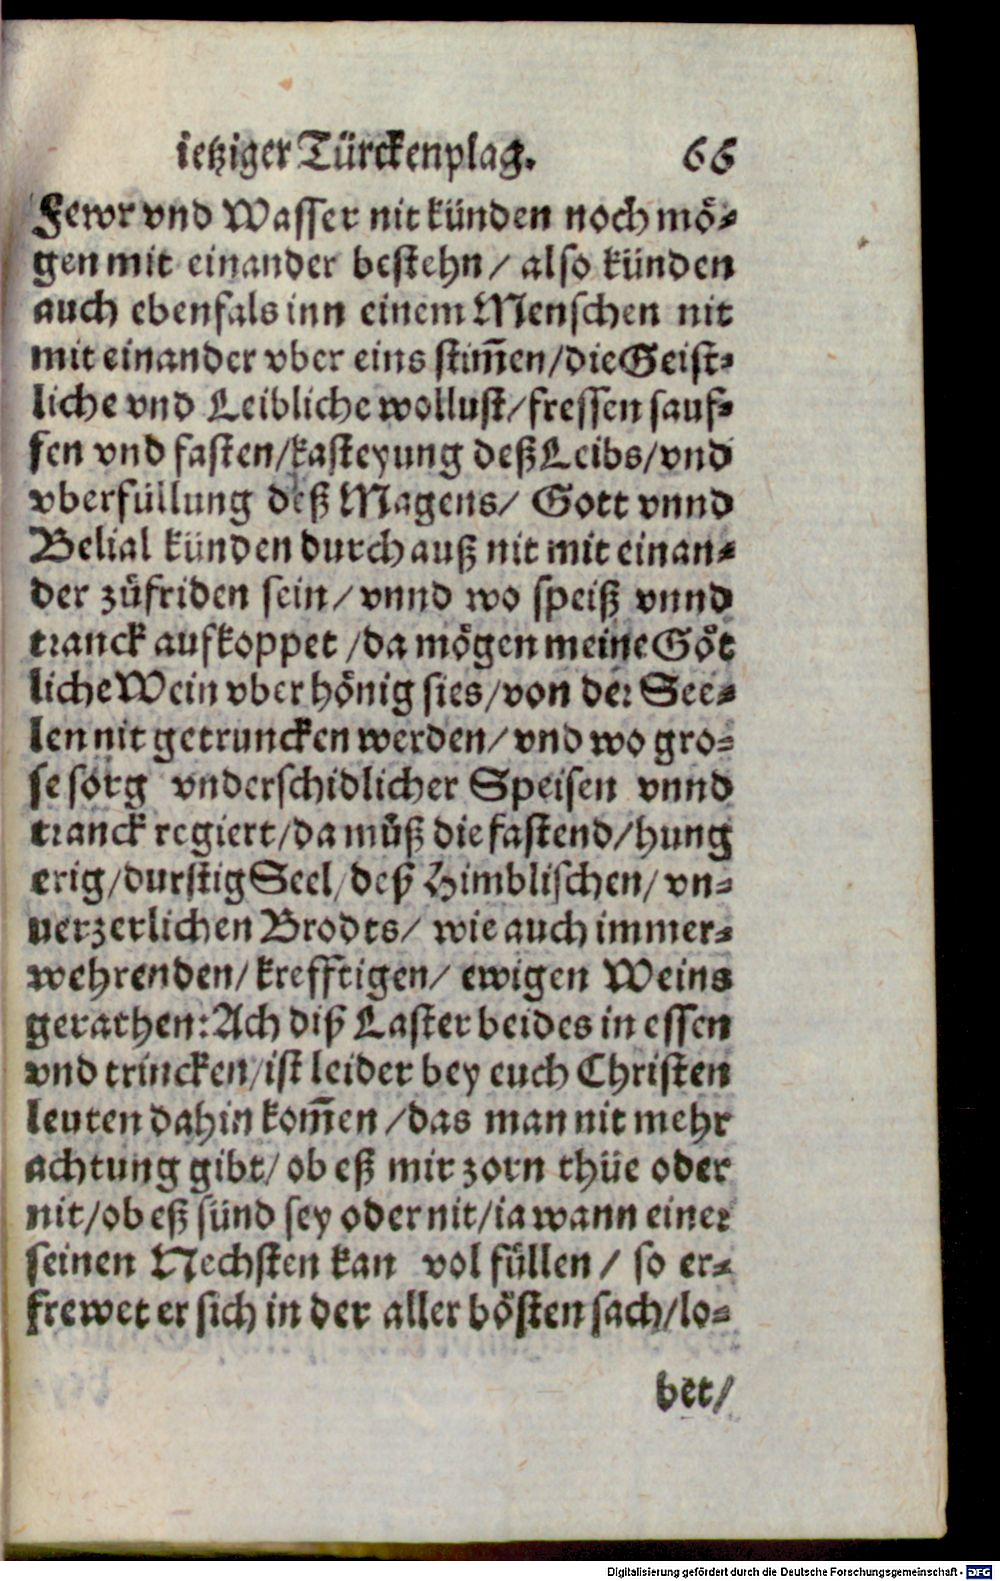 ietziger Türckenplag. 66
Fewr vnd Wasser nit künden noch mö⸗
gen mit einander bestehn / also künden
auch ebenfals inn einem Menschen nit
mit einander vber eins stim̃en/die Geist⸗
liche vnd Leibliche wollust/fressen sauf⸗
fen vnd fasten/kasteyung deß Leibs/vnd
vberfüllung deß Magens/ Gott vnnd
Belial künden durch auß nit mit einan⸗
der zůfriden sein/ vnnd wo speiß vnnd
tranck aufkoppet /da mögen meine Göt
liche Wein vber hönig sies/von der See⸗
len nit getruncken werden/ vnd wo gro⸗
se sorg vnderschidlicher Speisen vnnd
tranck regiert/da můß die fastend/hung
erig/durstig Seel/deß Himblischen/ vn⸗
uerzerlichen Brodts/ wie auch immer⸗
wehrenden/krefftigen/ ewigen Weins
gerathen: Ach diß Laster beides in essen
vnd trincken/ist leider bey euch Christen
leuten dahin kom̃en /das man nit mehr
achtung gibt/ ob eß mir zorn thüe oder
nit/ob eß sünd sey oder nit/ia wann einer
seinen Nechsten kan vol füllen / so er⸗
frewet er sich in der aller bösten sach/lo⸗
bet/
Digitalisierung gefördert durch die Deutsche Forschungsgemeinschaft - DFG